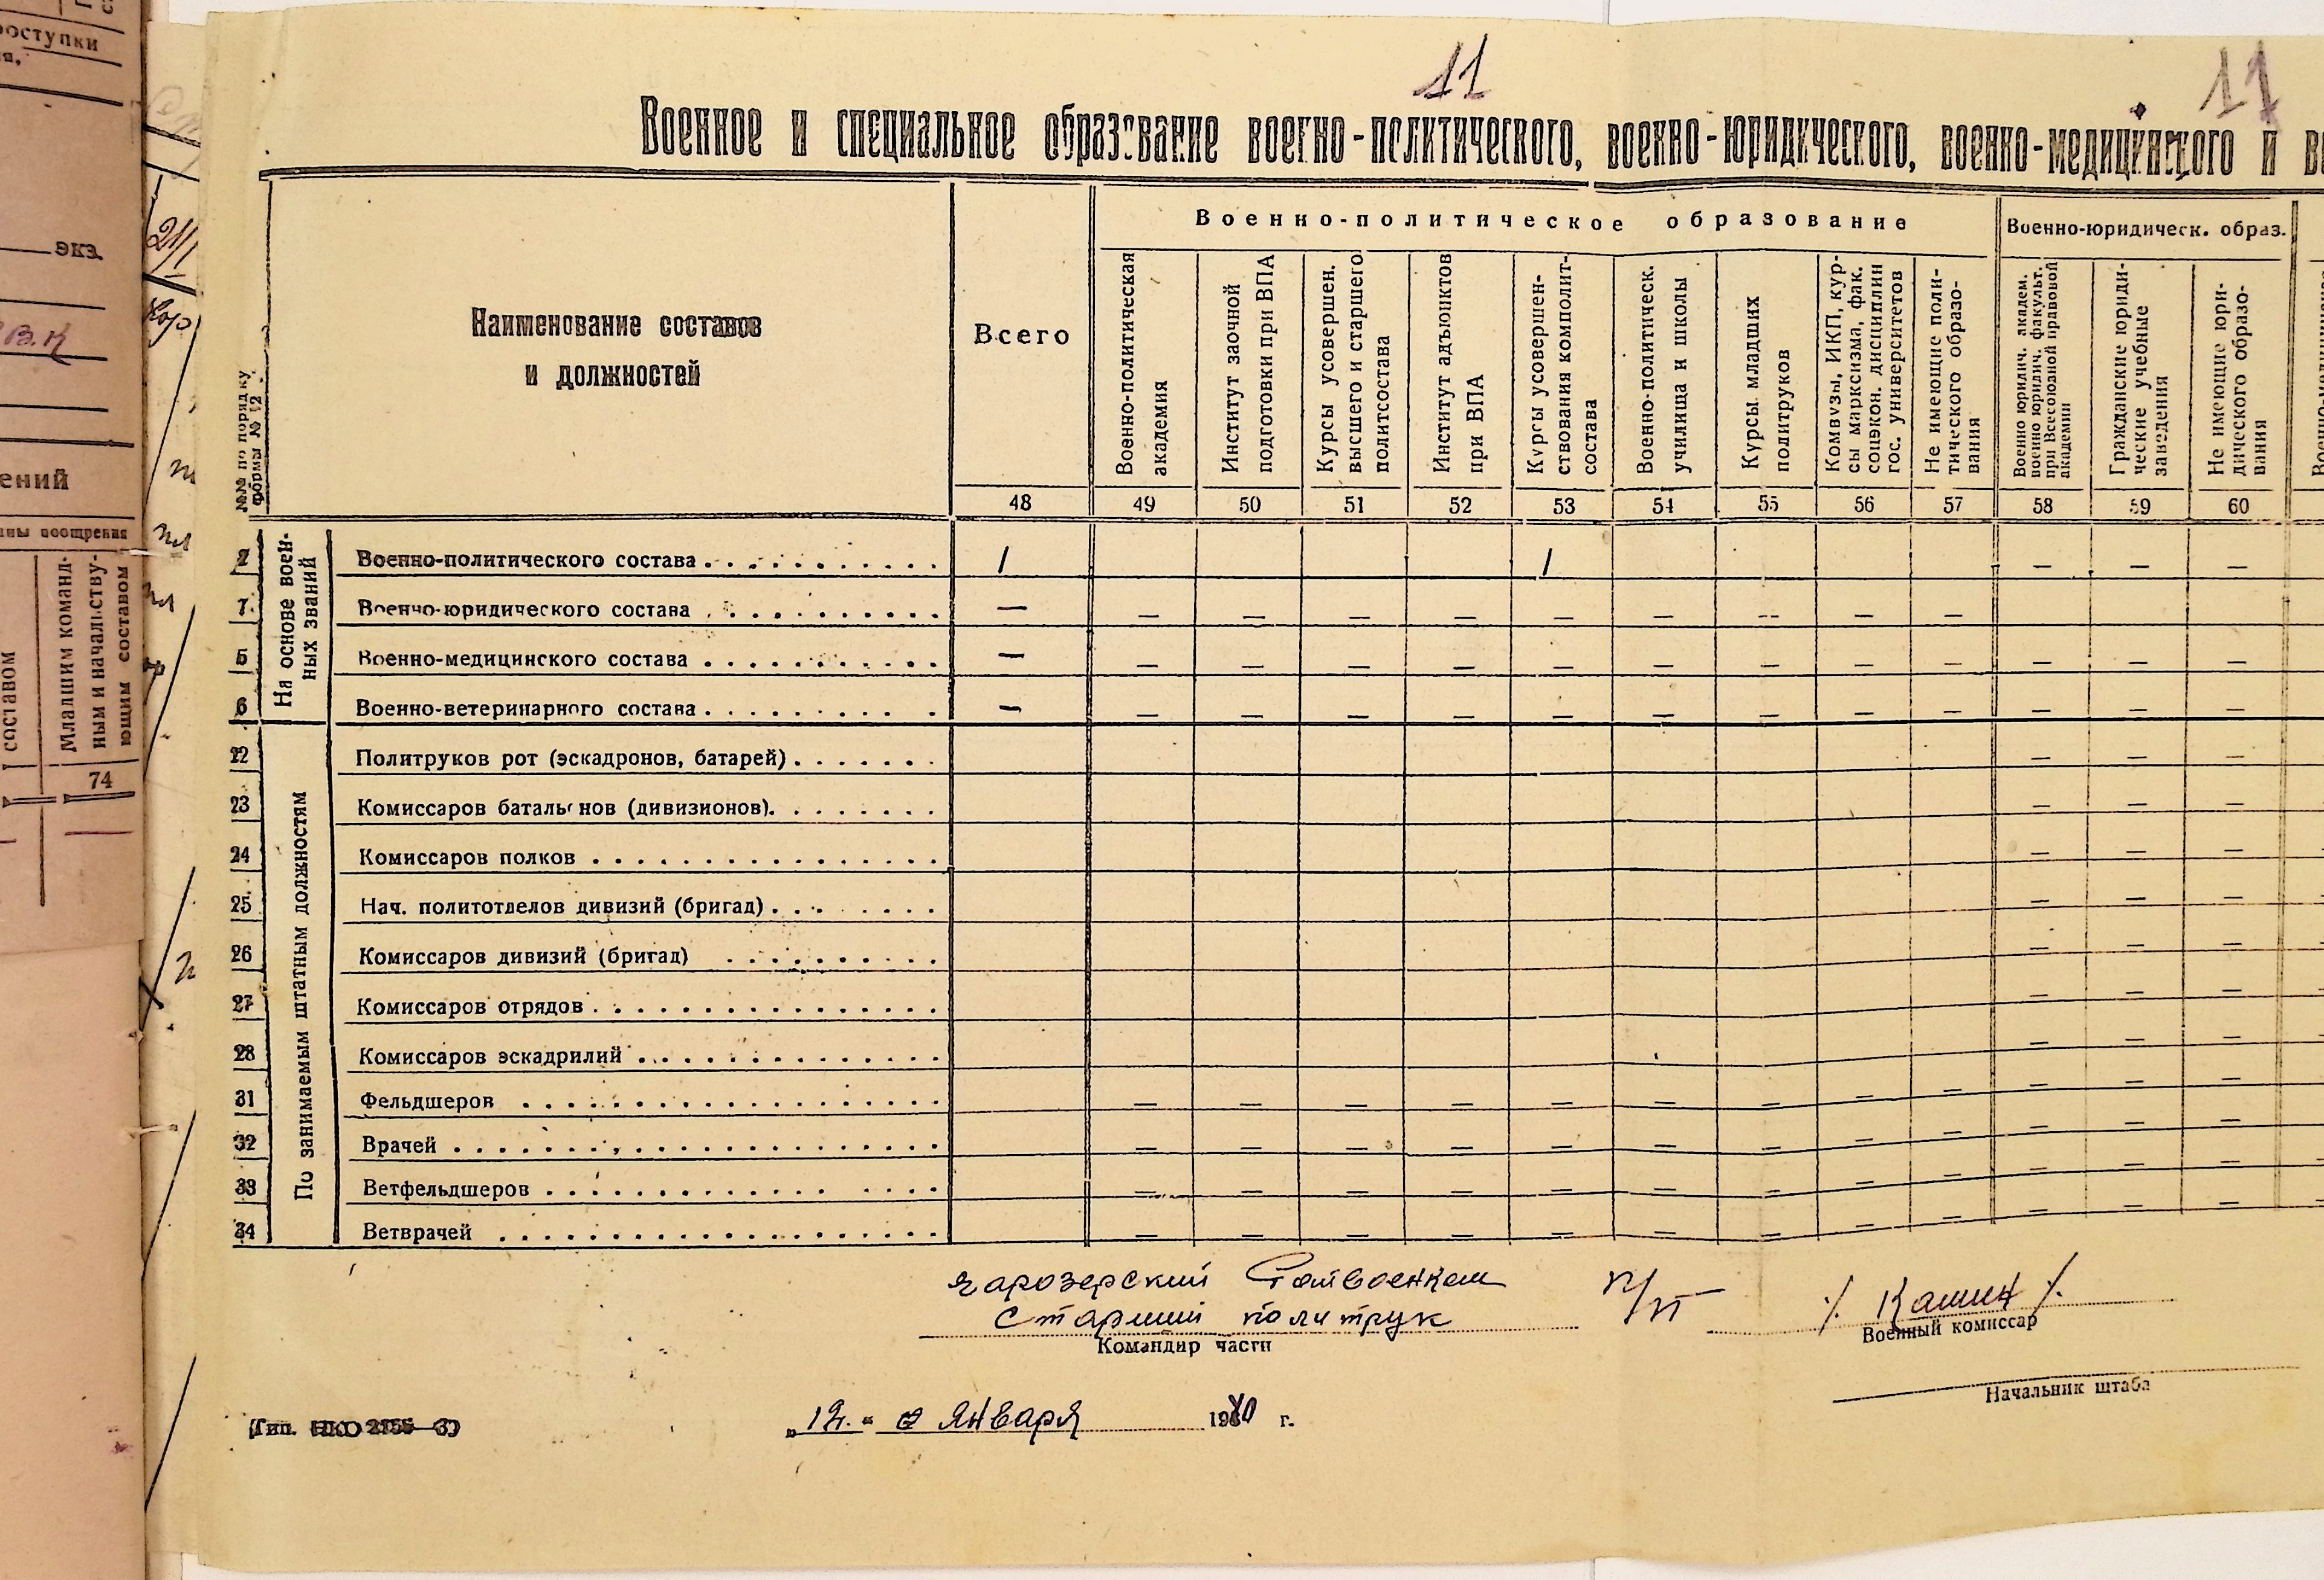 11
11
Военное и специальное образование военно-политического, военно-юридического, военно-медицинского и
№№ по порядку формы № 12
Наименование составов
и должностей
Всего
Военно-политическое образование
Военно-юридическ. образ.
Военно-политическая академия
Институт заочной подготовки при ВПА
Курсы усовершен. высшего и старшего политсостава
Институт адъюнктов при ВПА
Курсы усовершенствования комполитсостава
Военно-политическ. училища и школы
Курсы младших политруков
Комвузы, ИКП, курсы марксизма, фак. соцэкон. дисциплин гос. университетов
Не имеющие политического образования
Военно юридич. академ. военно юридич. факульт. при Всесоюзной правовой академии
Гражданские юридические учебные заведения
Не имеющие юридического образования
48 49 50 51 52 53 54 55 56 57 58 59 60
На основе воен-
ных званий
2 Военно-политического состава / / — — —
7 Военно-юридического состава — — — — — — — — — —
5 Военно-медицинского состава — — — — — — — — — — — — —
6 Военно-ветеринарного состава — — — — — — — — — — — — —
По занимаемым штатным должностям
22 Политруков рот (эскадронов, батарей) — — —
23 Комиссаров батальонов (дивизионов) — — —
24 Комиссаров полков — — —
25 Нач. политотделов дивизий (бригад) — — —
26 Комиссаров дивизий (бригад) — — —
27 Комиссаров отрядов — — —
28 Комиссаров эскадрилий — — —
31 Фельдшеров — — — — — — — — — — — —
32 Врачей — — — — — — — — — — — —
33 Ветфельдшеров — — — — — — — — — — — —
34 Ветврачей — — — — — — — — — — — —
Чарозерский Райвоенком
Старший политрук
п/п /Кашин/
Командир части
Военный комиссар
Начальник штаба
„12“ января 1940 г.
(Тип. НКО
оступки
экз.
В.К
ений
ны поощрения
составом
Младшим команд-
ным и начальству-
ющим составом
74
21/I